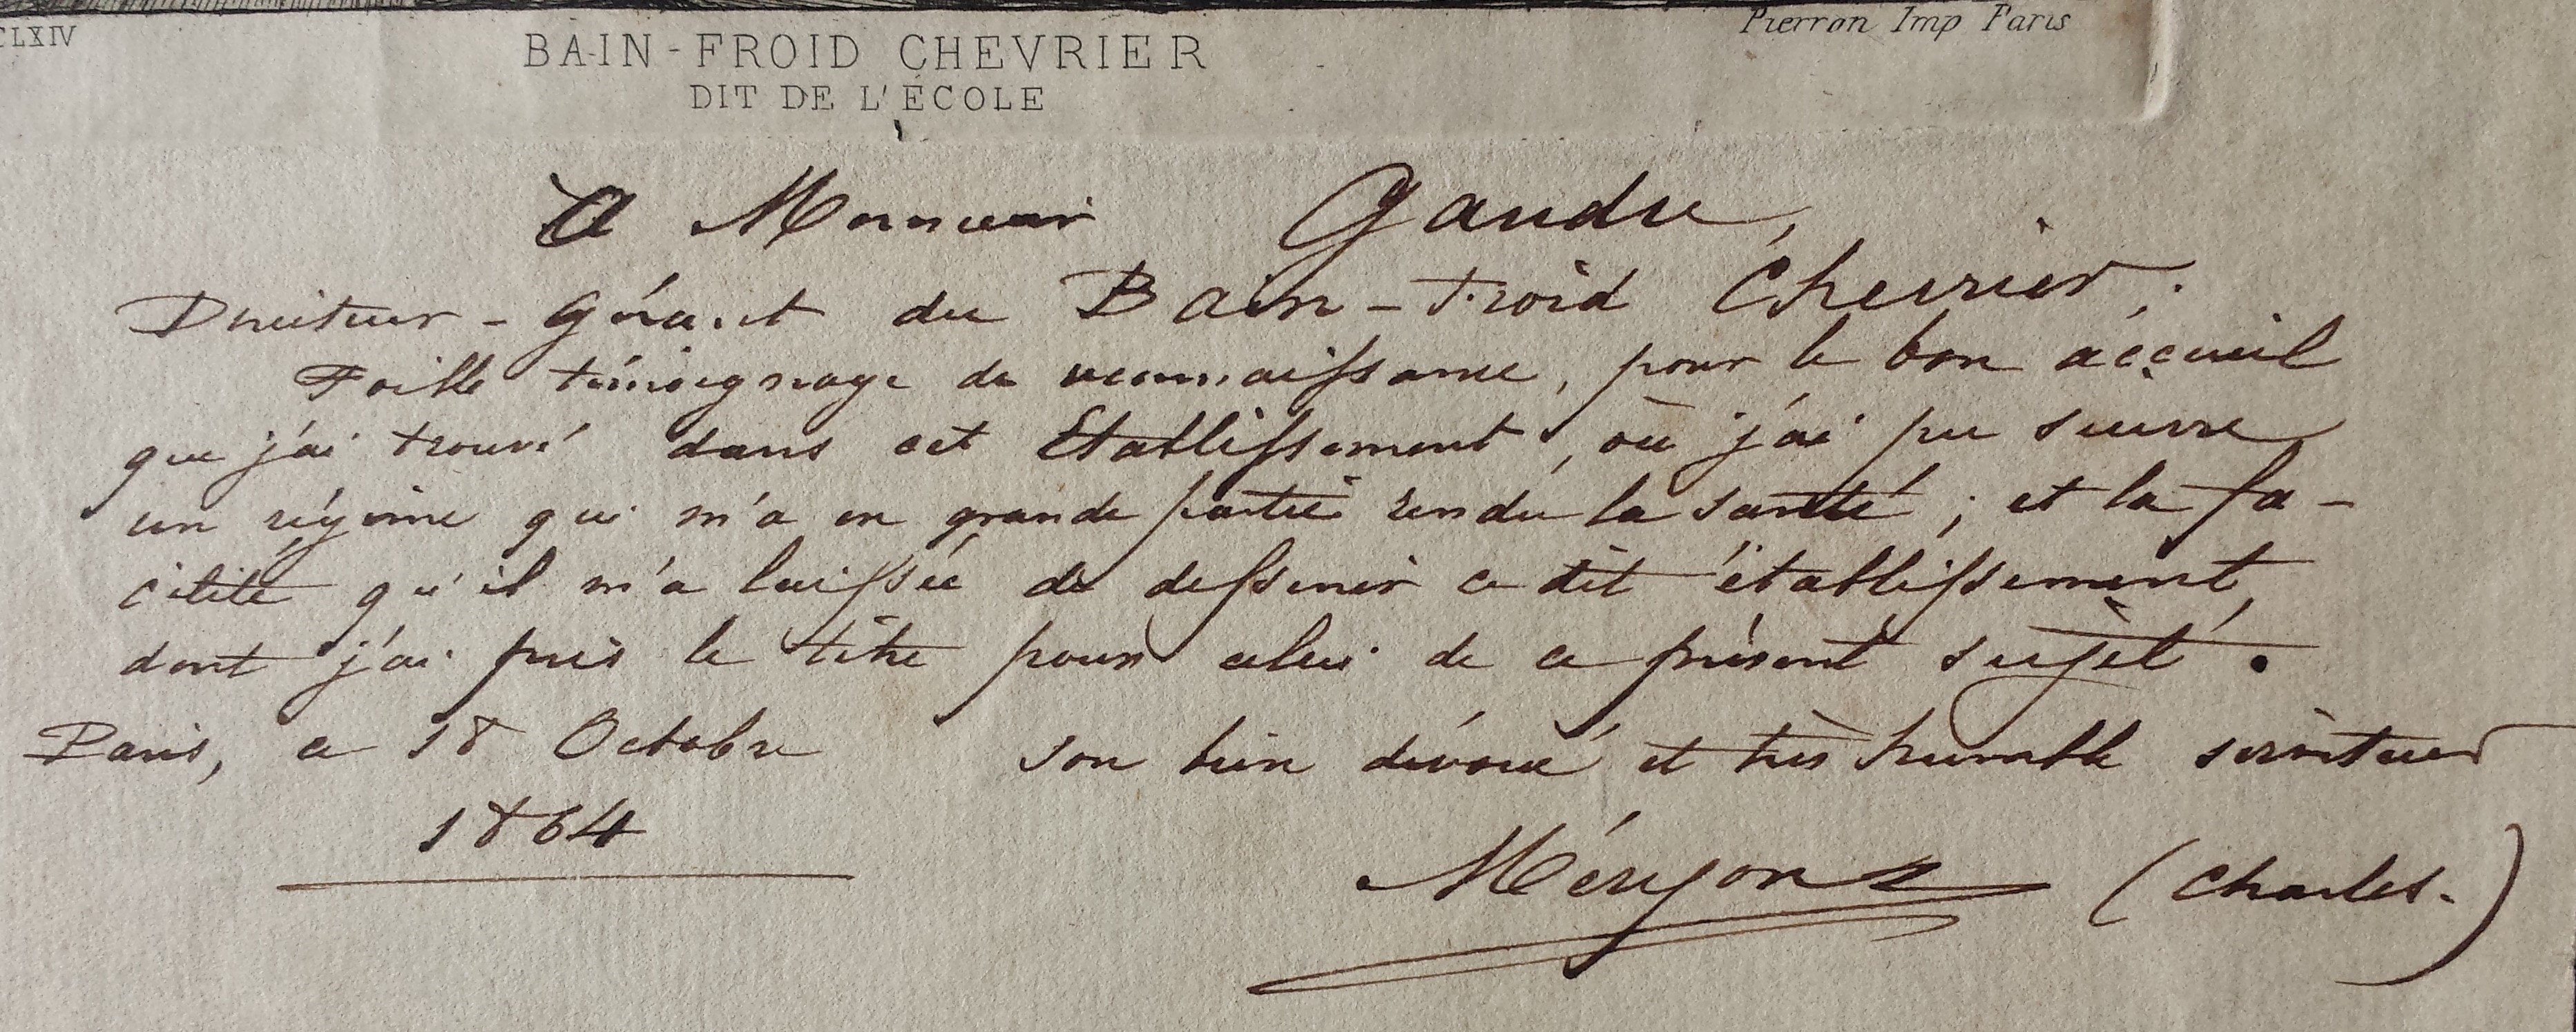 CLXIV
Pierron Imp Paris
BAIN-FROID CHEVRIER
DIT DE L'ÉCOLE
À Monsieur Gaudre,
Directeur-Gérant du Bain-froid Chevrier;
Faible témoignage de reconnaissance, pour le bon accueil
que j'ai trouvé dans cet Etablissement, où j'ai pu suivre
un régime qui m'a en grande partie rendu la santé; et la fa-
cilité qu'il m'a laissée de dessiner ce dit établissement,
dont j'ai pris le titre pour celui de ce présent sujet.
Paris, ce 18 Octobre son bien dévoué et très humble serviteur
1864
Méryon (Charles.)